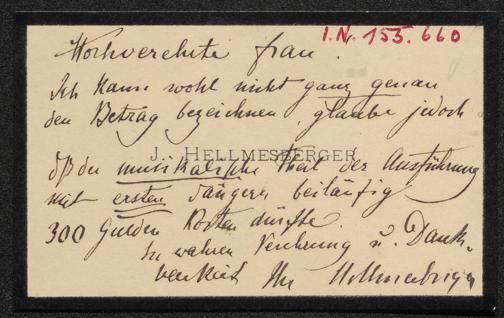 I.N. 155.660
Hochverehrte Frau!
Ich kann wohl nicht ganz genau
den Betrag bezeichnen, glaube jedoch
J. HELLMESBERGER
dß der musikalische Theil der Ausführung
mit ersten Sängern beiläufig
300 Gulden kosten dürfte.
In wahrer Verehrung u. Dank-
barkeit Ihr Hellmesberger